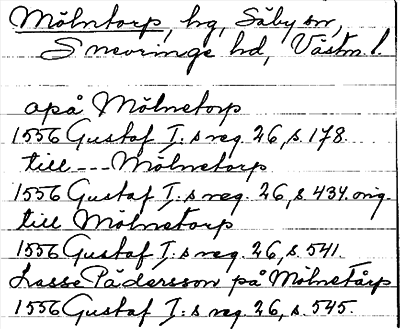 Mölntorp, hg, Säby sn,
Snevringe hd, Västm l.
apå Mölnetorp
1556 Gustaf I:s reg. 26, s. 178.
till --- Mölnetorp
1556 Gustaf I:s reg. 26, s. 434. orig.
till Mölnetorp
1556 Gustaf I:s reg. 26, s. 541.
Lasse Pädersson på Mölnetårp
1556 Gustaf I:s reg. 26, s. 545.